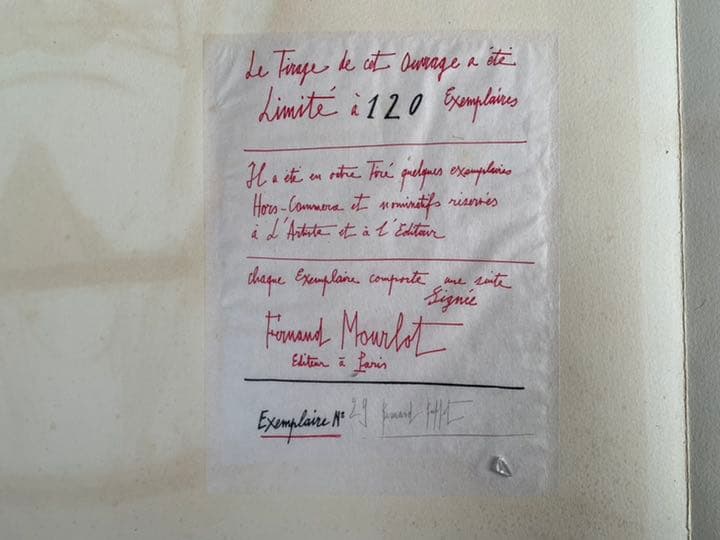 Le Tirage de cet Ouvrage a été
Limité à 120 Exemplaires
Il a été en outre Tiré quelques exemplaires
Hors-Commerce et nominatifs réservés
à L'Artiste et à l'Editeur
chaque Exemplaire comporte une suite
Signée
Fernand Mourlot
Editeur à Paris
Exemplaire N° 29